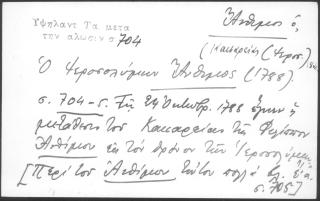 Υψηλαντ Τα μετα
την αλωσιν σ 704
Ἄνθιμος ὁ,
(Καισαρείας) (Ἱεροσ.)
Ὁ Ἱεροσολύμων Ἄνθιμος (1788).
σ. 704 - 5. Τῇ 24 Ὀκτωβρ. 1788 ἐγένετο ἡ
μετάθεσις τοῦ Καισαρείας τῆς Φιλίππου
Ἀνθίμου εἰς τὸν θρόνον τῶν Ἱεροσολύμων
[Περὶ τοῦ Ἀνθίμου τούτου πολλὰ
σ. 705]